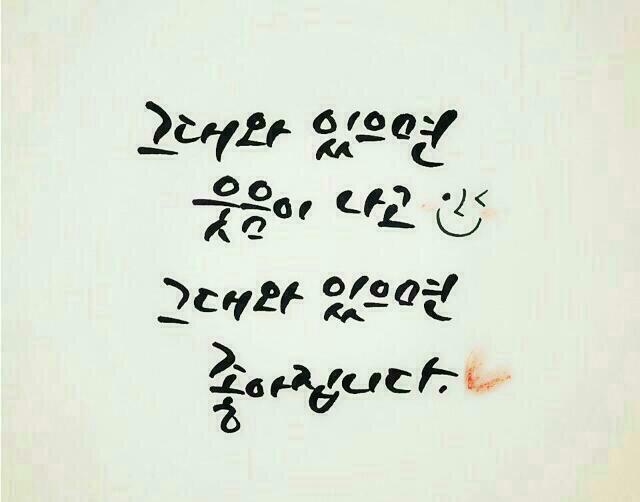 그대와 있으면
웃음이 나고
그대와 있으면
좋아집니다.